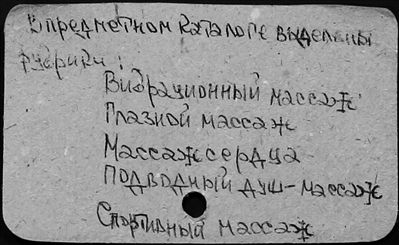 В предметном каталоге выделены
рубрики:
Вибрационный массаж
Глазной массаж
Массаж сердца
Подводный душ-массаж
Спортивный массаж